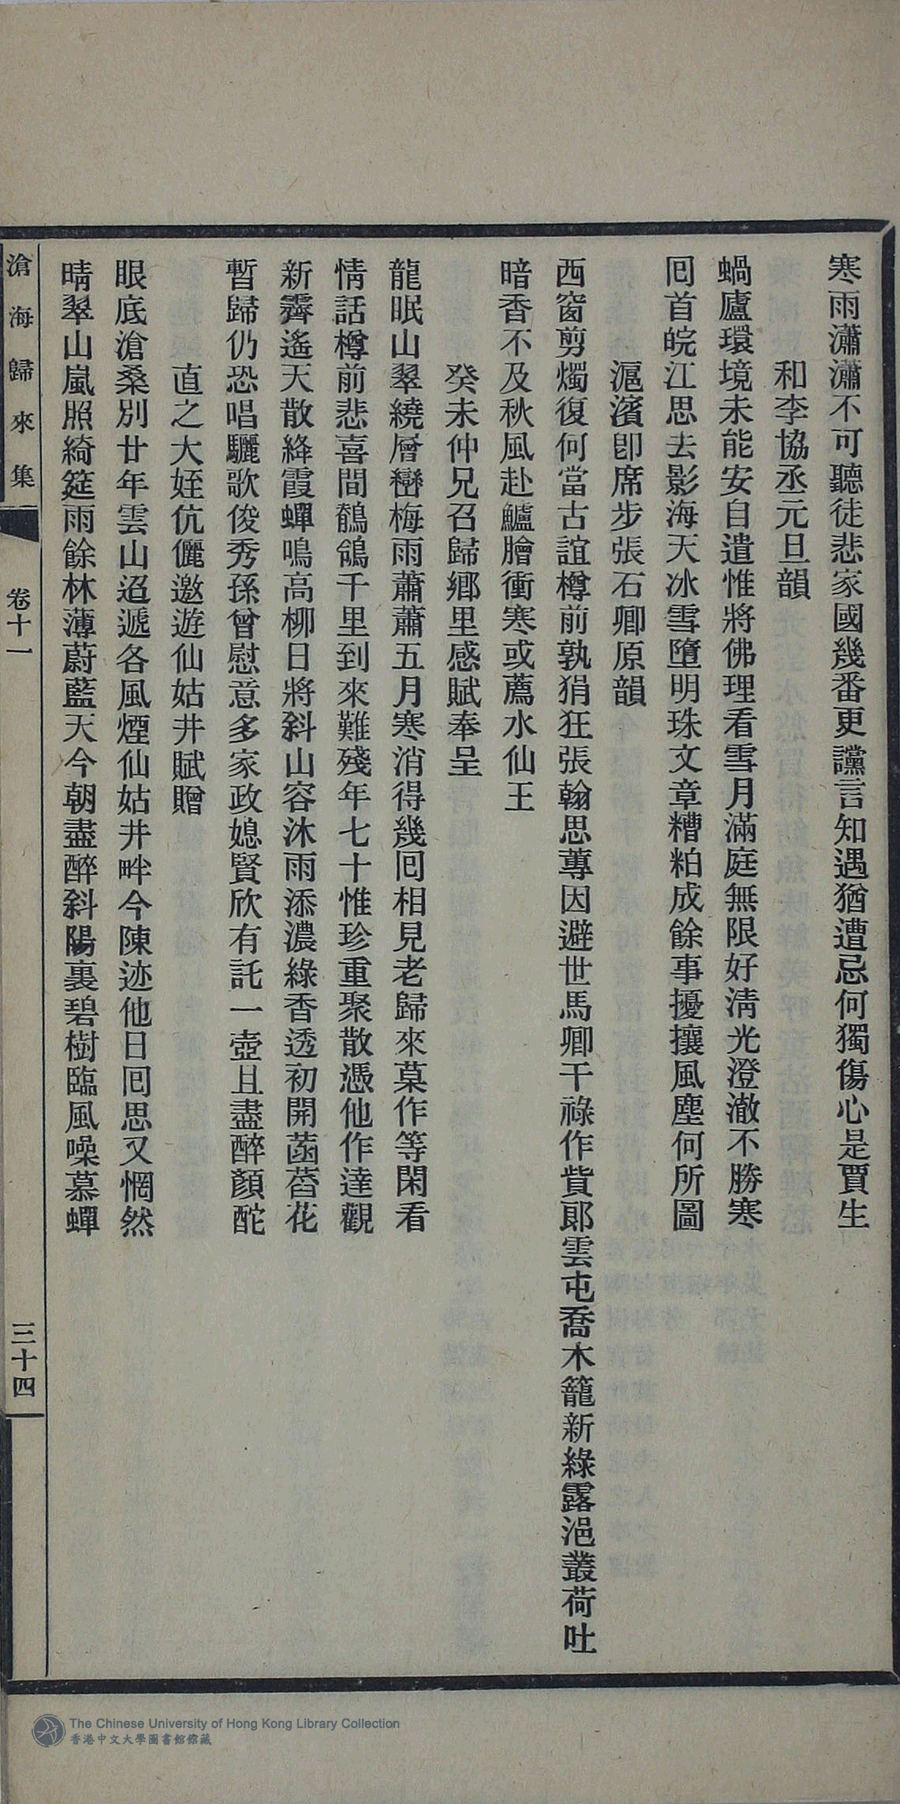 寒雨瀟瀟不可聽徒悲家國幾番更讜言知遇猶遭忌何獨傷心是賈生
和李協丞元旦韻
蝸廬環境未能安自遣惟將佛理看雪月滿庭無限好淸光澄澈不勝寒
囘首皖江思去影海天冰雪墮明珠文章糟粕成餘事擾攘風塵何所圖
滬濱卽席步張石卿原韻
西窗剪燭復何當古誼樽前孰狷狂張翰思蓴因避世馬卿干祿作貲郞雲屯喬木籠新綠露浥叢荷吐
暗香不及秋風赴鱸膾衝寒或薦水仙王
癸未仲兄召歸鄉里感賦奉呈
龍眠山翠繞層巒梅雨蕭蕭五月寒消得幾囘相見老歸來莫作等閑看
情話樽前悲喜間鶺鴒千里到來難殘年七十惟珍重聚散憑他作達觀
新霽遙天散絳霞蟬鳴高柳日將斜山容沐雨添濃綠香透初開菡萏花
暫歸仍恐唱驪歌俊秀孫曾慰意多家政媳賢欣有託一壺且盡醉顏酡
直之大姪伉儷邀遊仙姑井賦贈
眼底滄桑別廿年雲山迢遞各風煙仙姑井畔今陳迹他日囘思又惘然
晴翠山嵐照綺筵雨餘林薄蔚藍天今朝盡醉斜陽裏碧樹臨風噪慕蟬
滄海歸來集
卷十一
三十四
The Chinese University of Hong Kong Library Collection
香港中文大學圖書館館藏